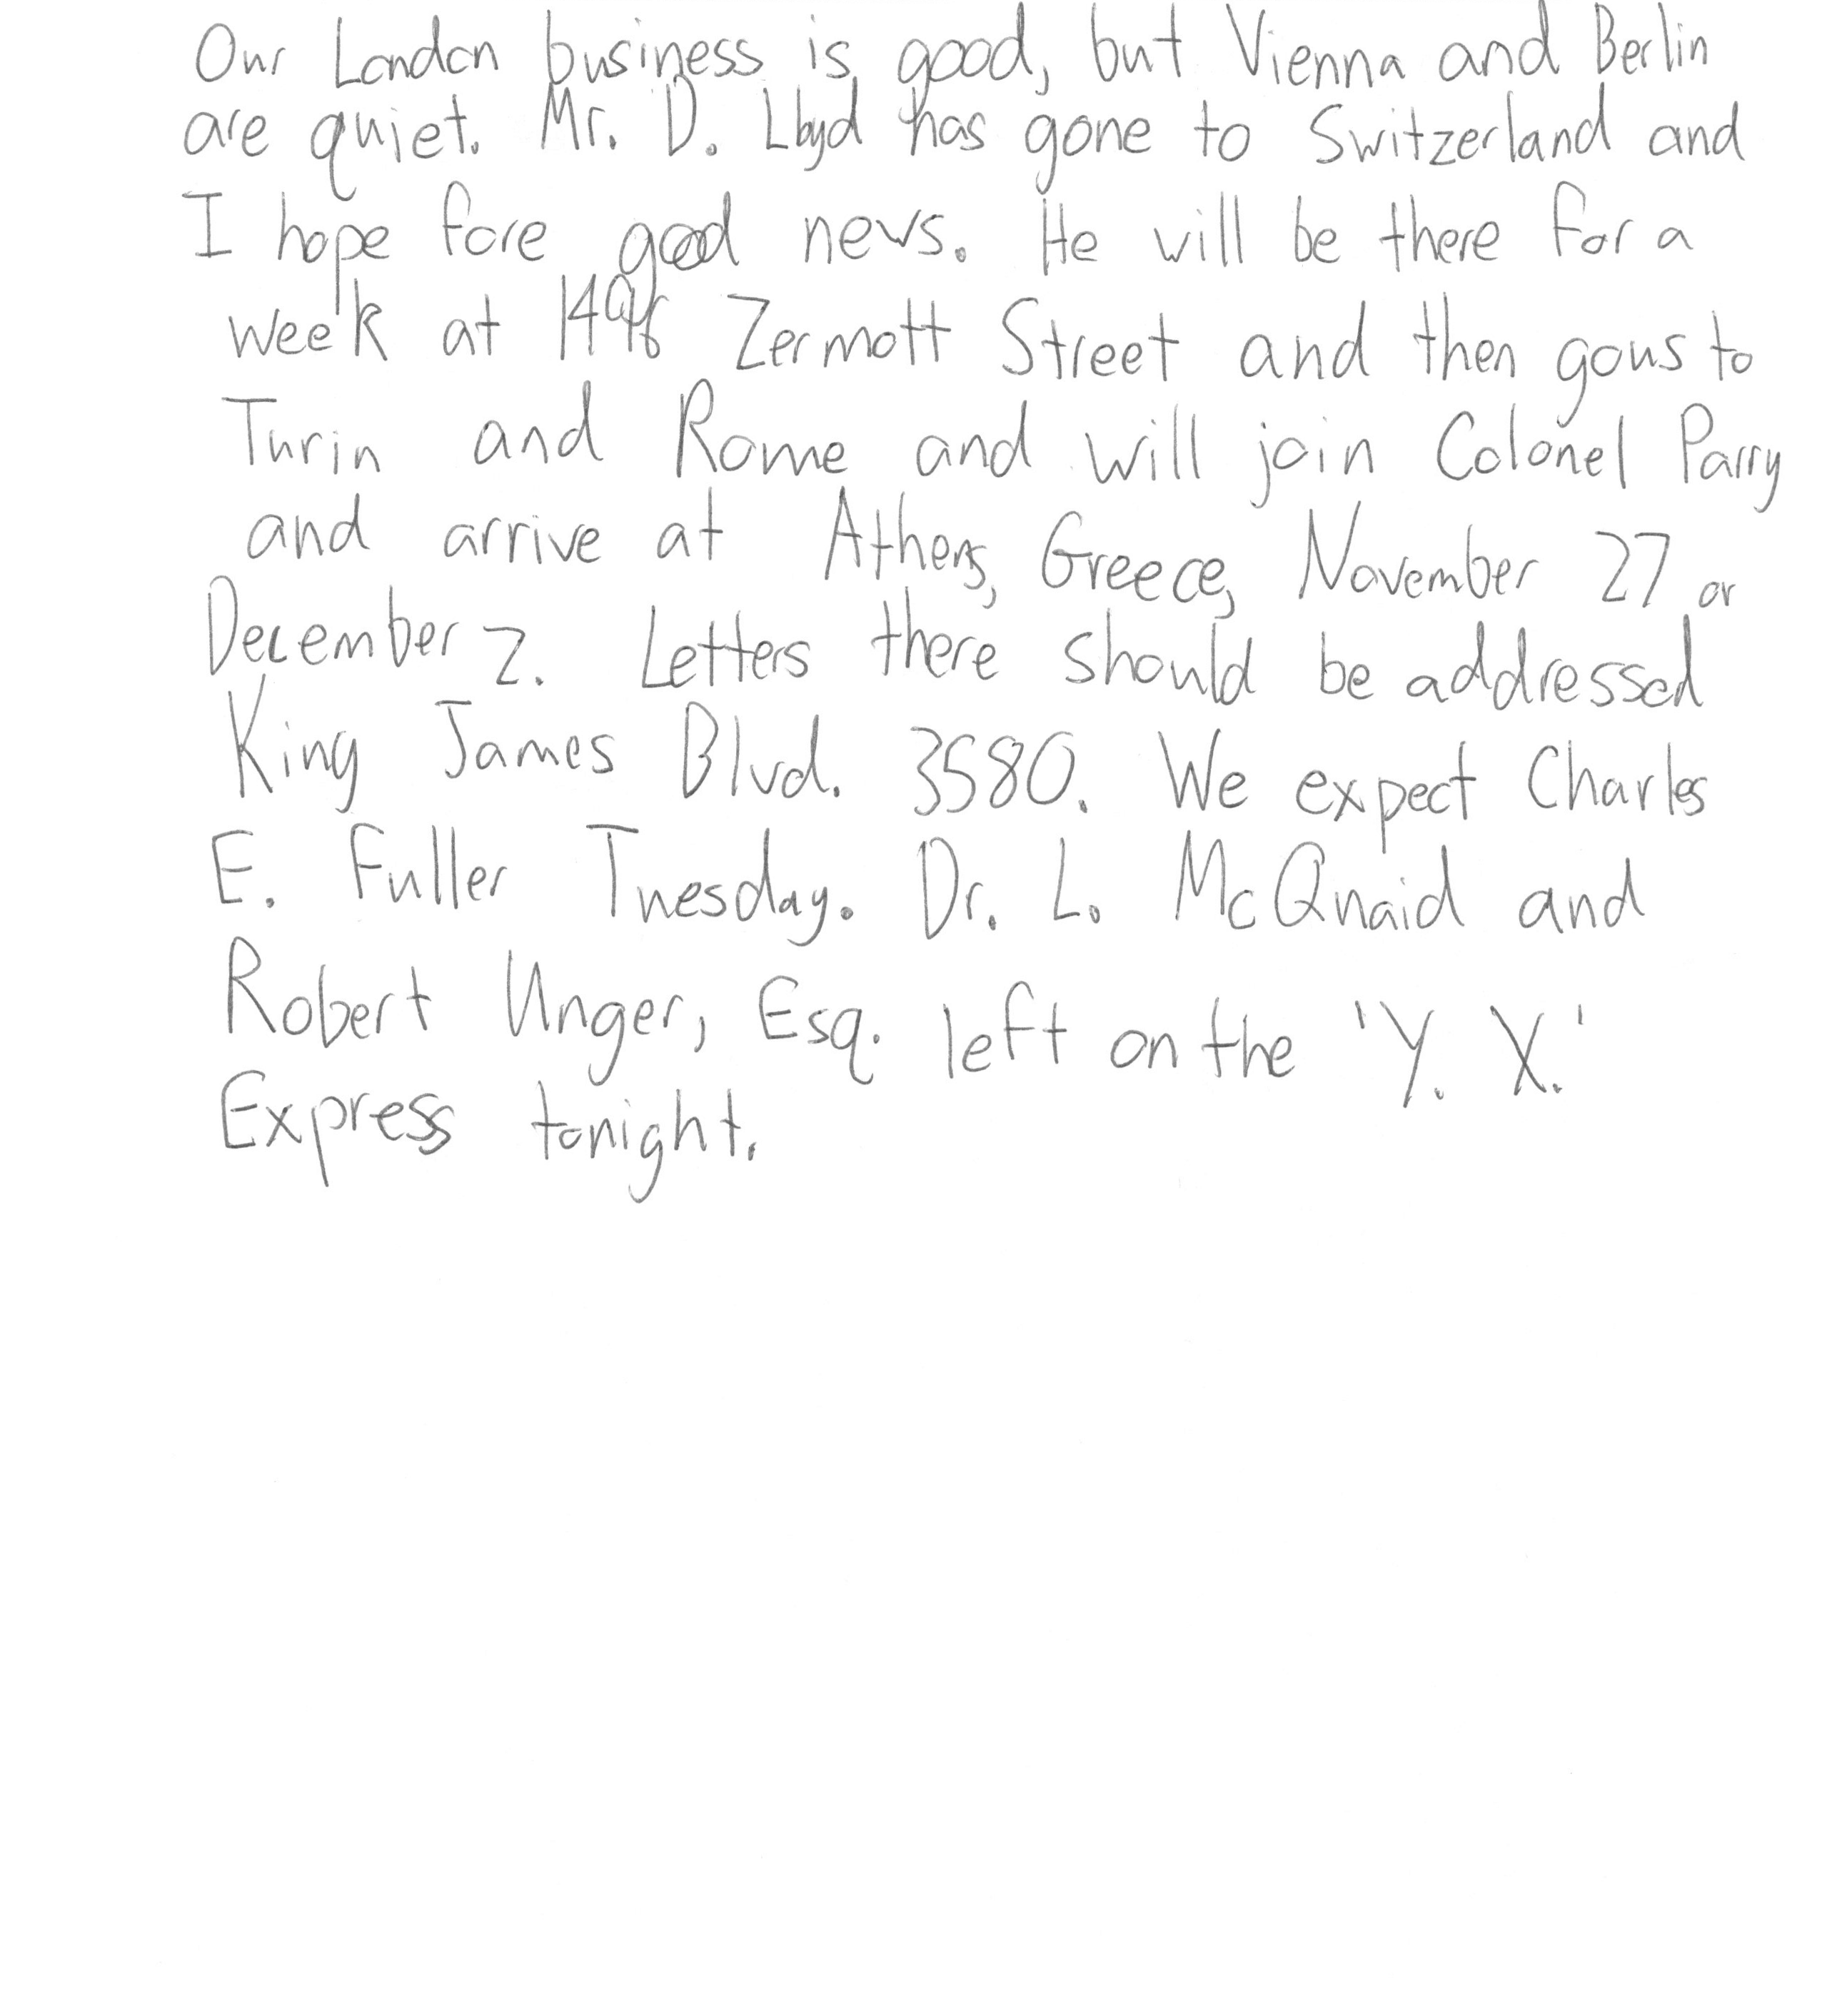 Our London business is good, but Vienna and Berlin
are quiet. Mr. D. Lloyd has gone to Switzerland and
I hope fore good news. He will be there for a
week at 1496 Zermott Street and then gous to
Turin and Rome and will join Colonel Parry
and arrive at Athens, Greece, November 27 or
December 2. Letters there should be addressed
King James Blvd. 3580. We expect Charles
E. Fuller Tuesday. Dr. L. McQuaid and
Robert Unger, Esq. left on the 'Y. X.'
Express tonight.